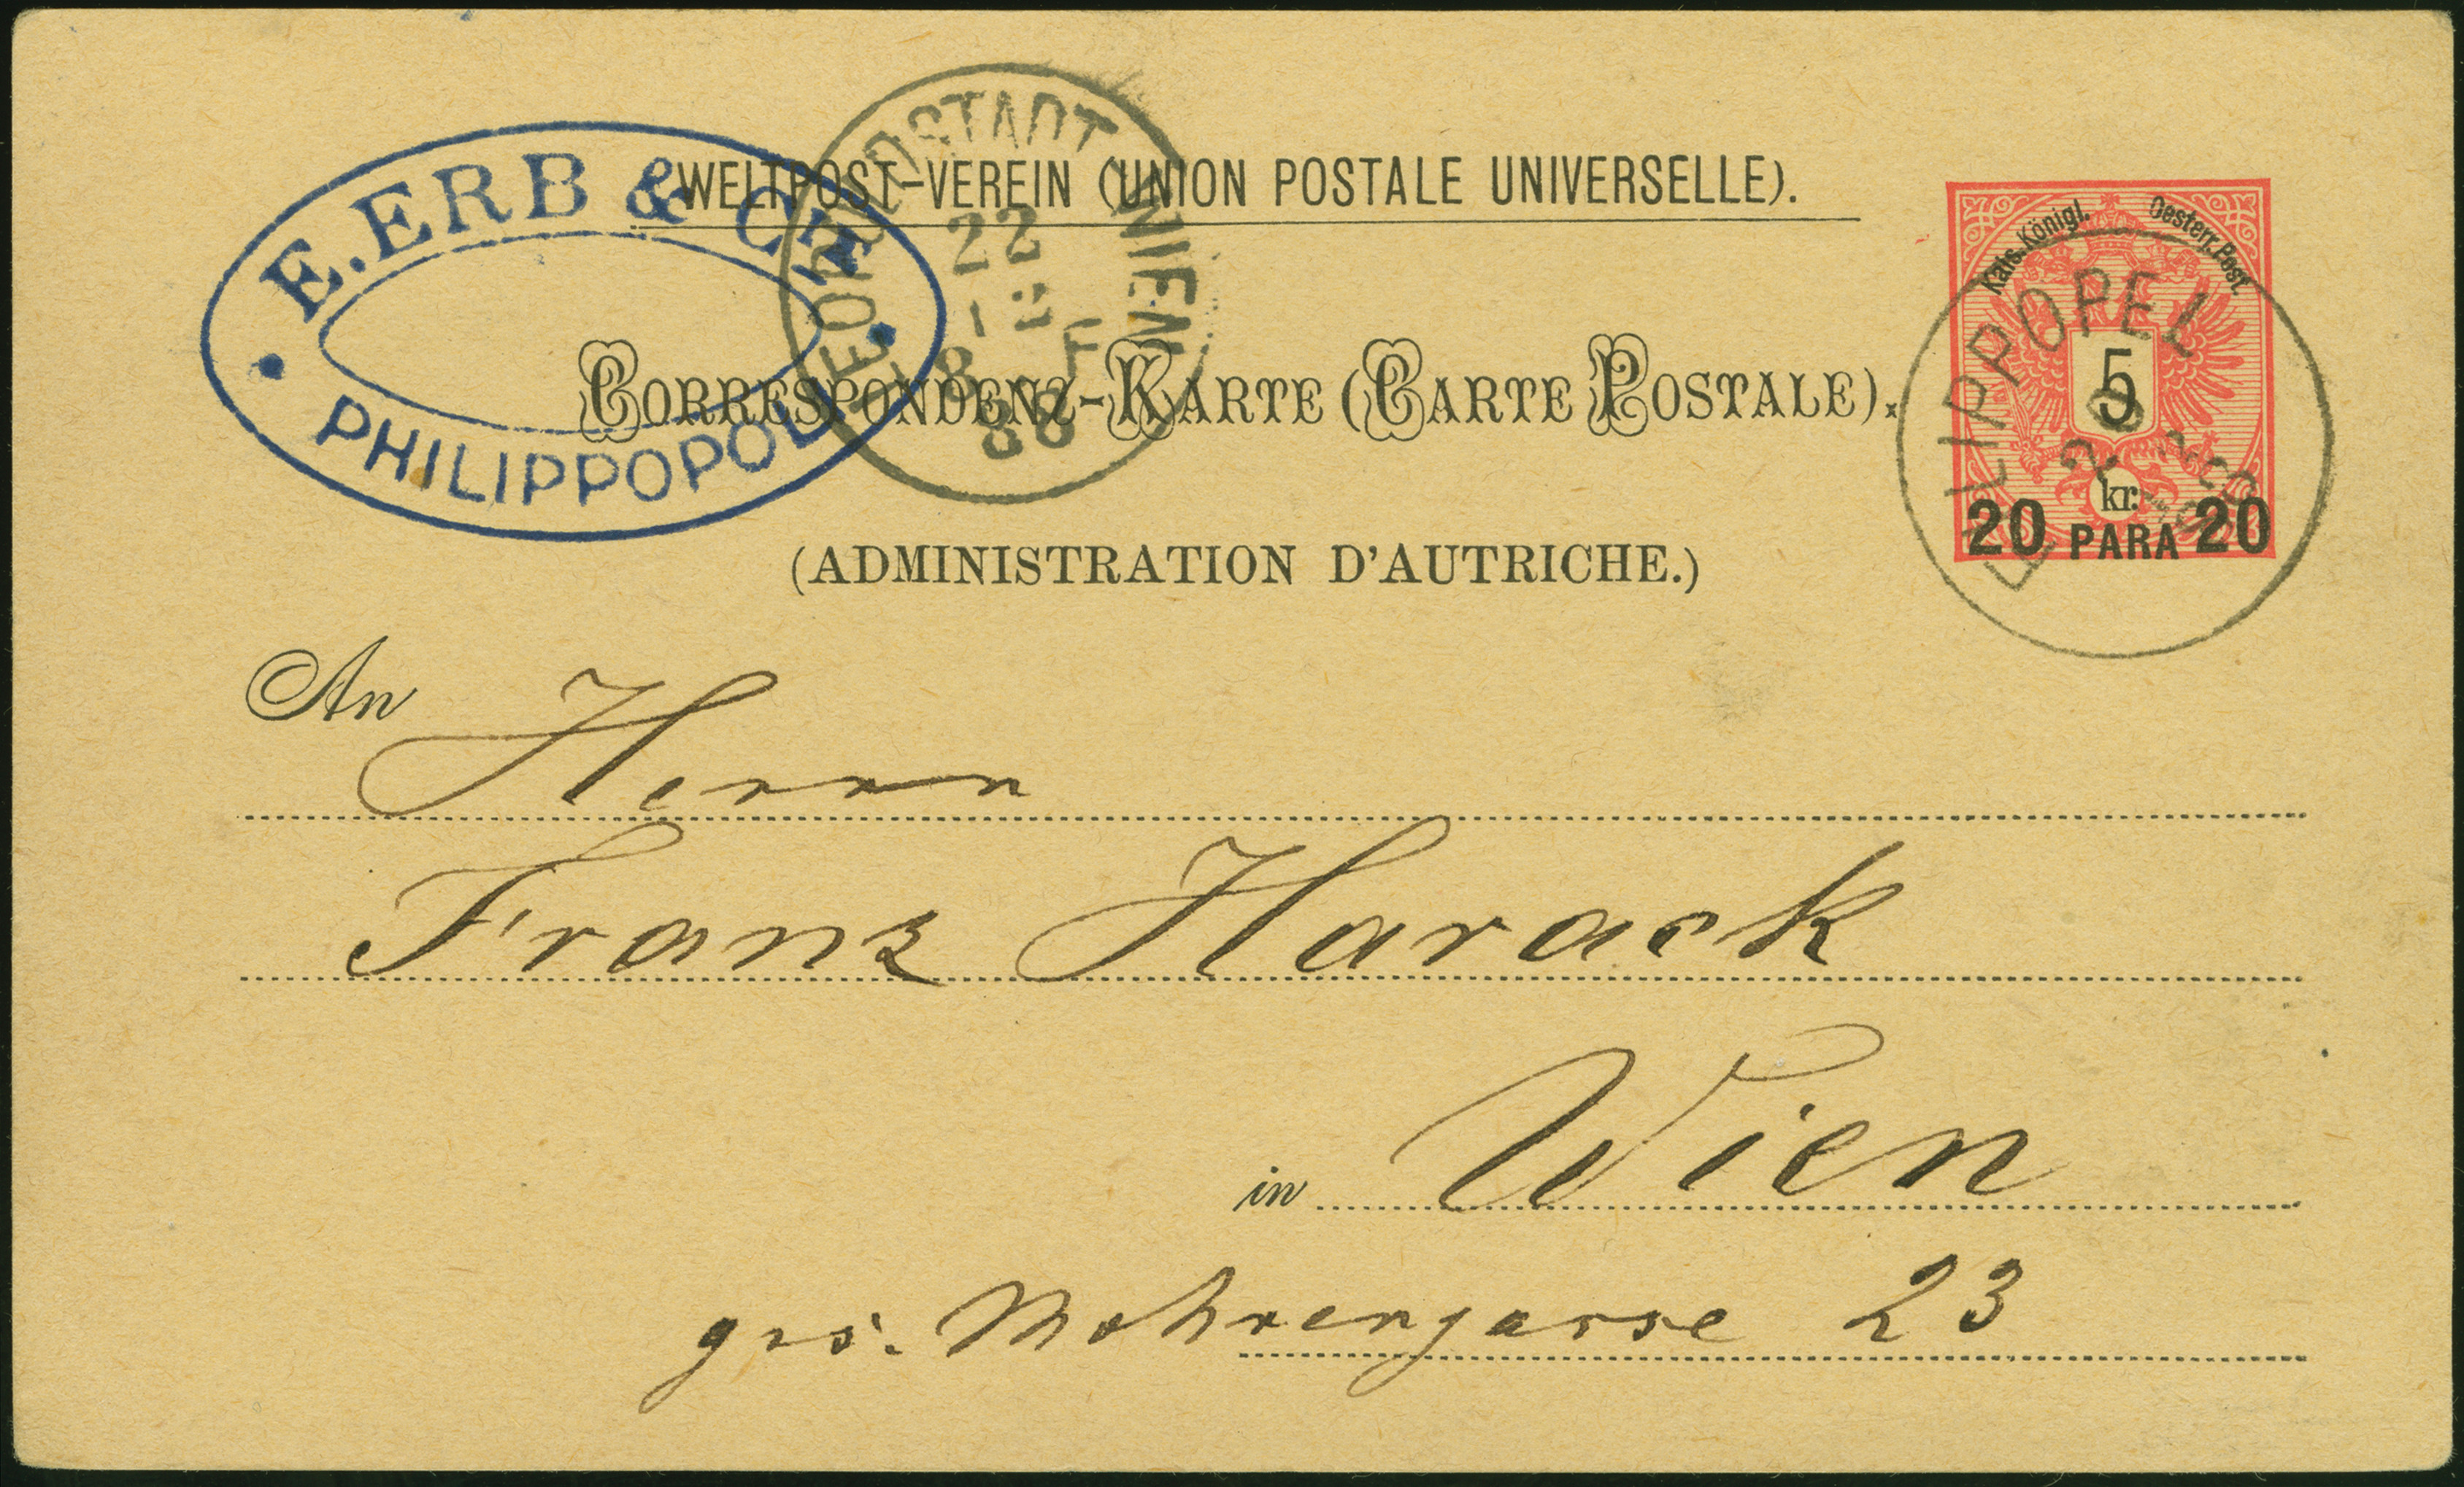 WELTPOST-VEREIN (UNION POSTALE UNIVERSELLE).
E. ERB & CIE
PHILIPPOPOLI
LEOPOLDSTADT WIEN
22
12
8 F
88
CORRESPONDENZ-KARTE (CARTE POSTALE).
(ADMINISTRATION D'AUTRICHE.)
Kais. Königl. Oesterr. Post.
5
kr.
20 PARA 20
FILIPPOPEL
An Herrn
Franz Harack
in Wien
grs. Mohrengasse 23